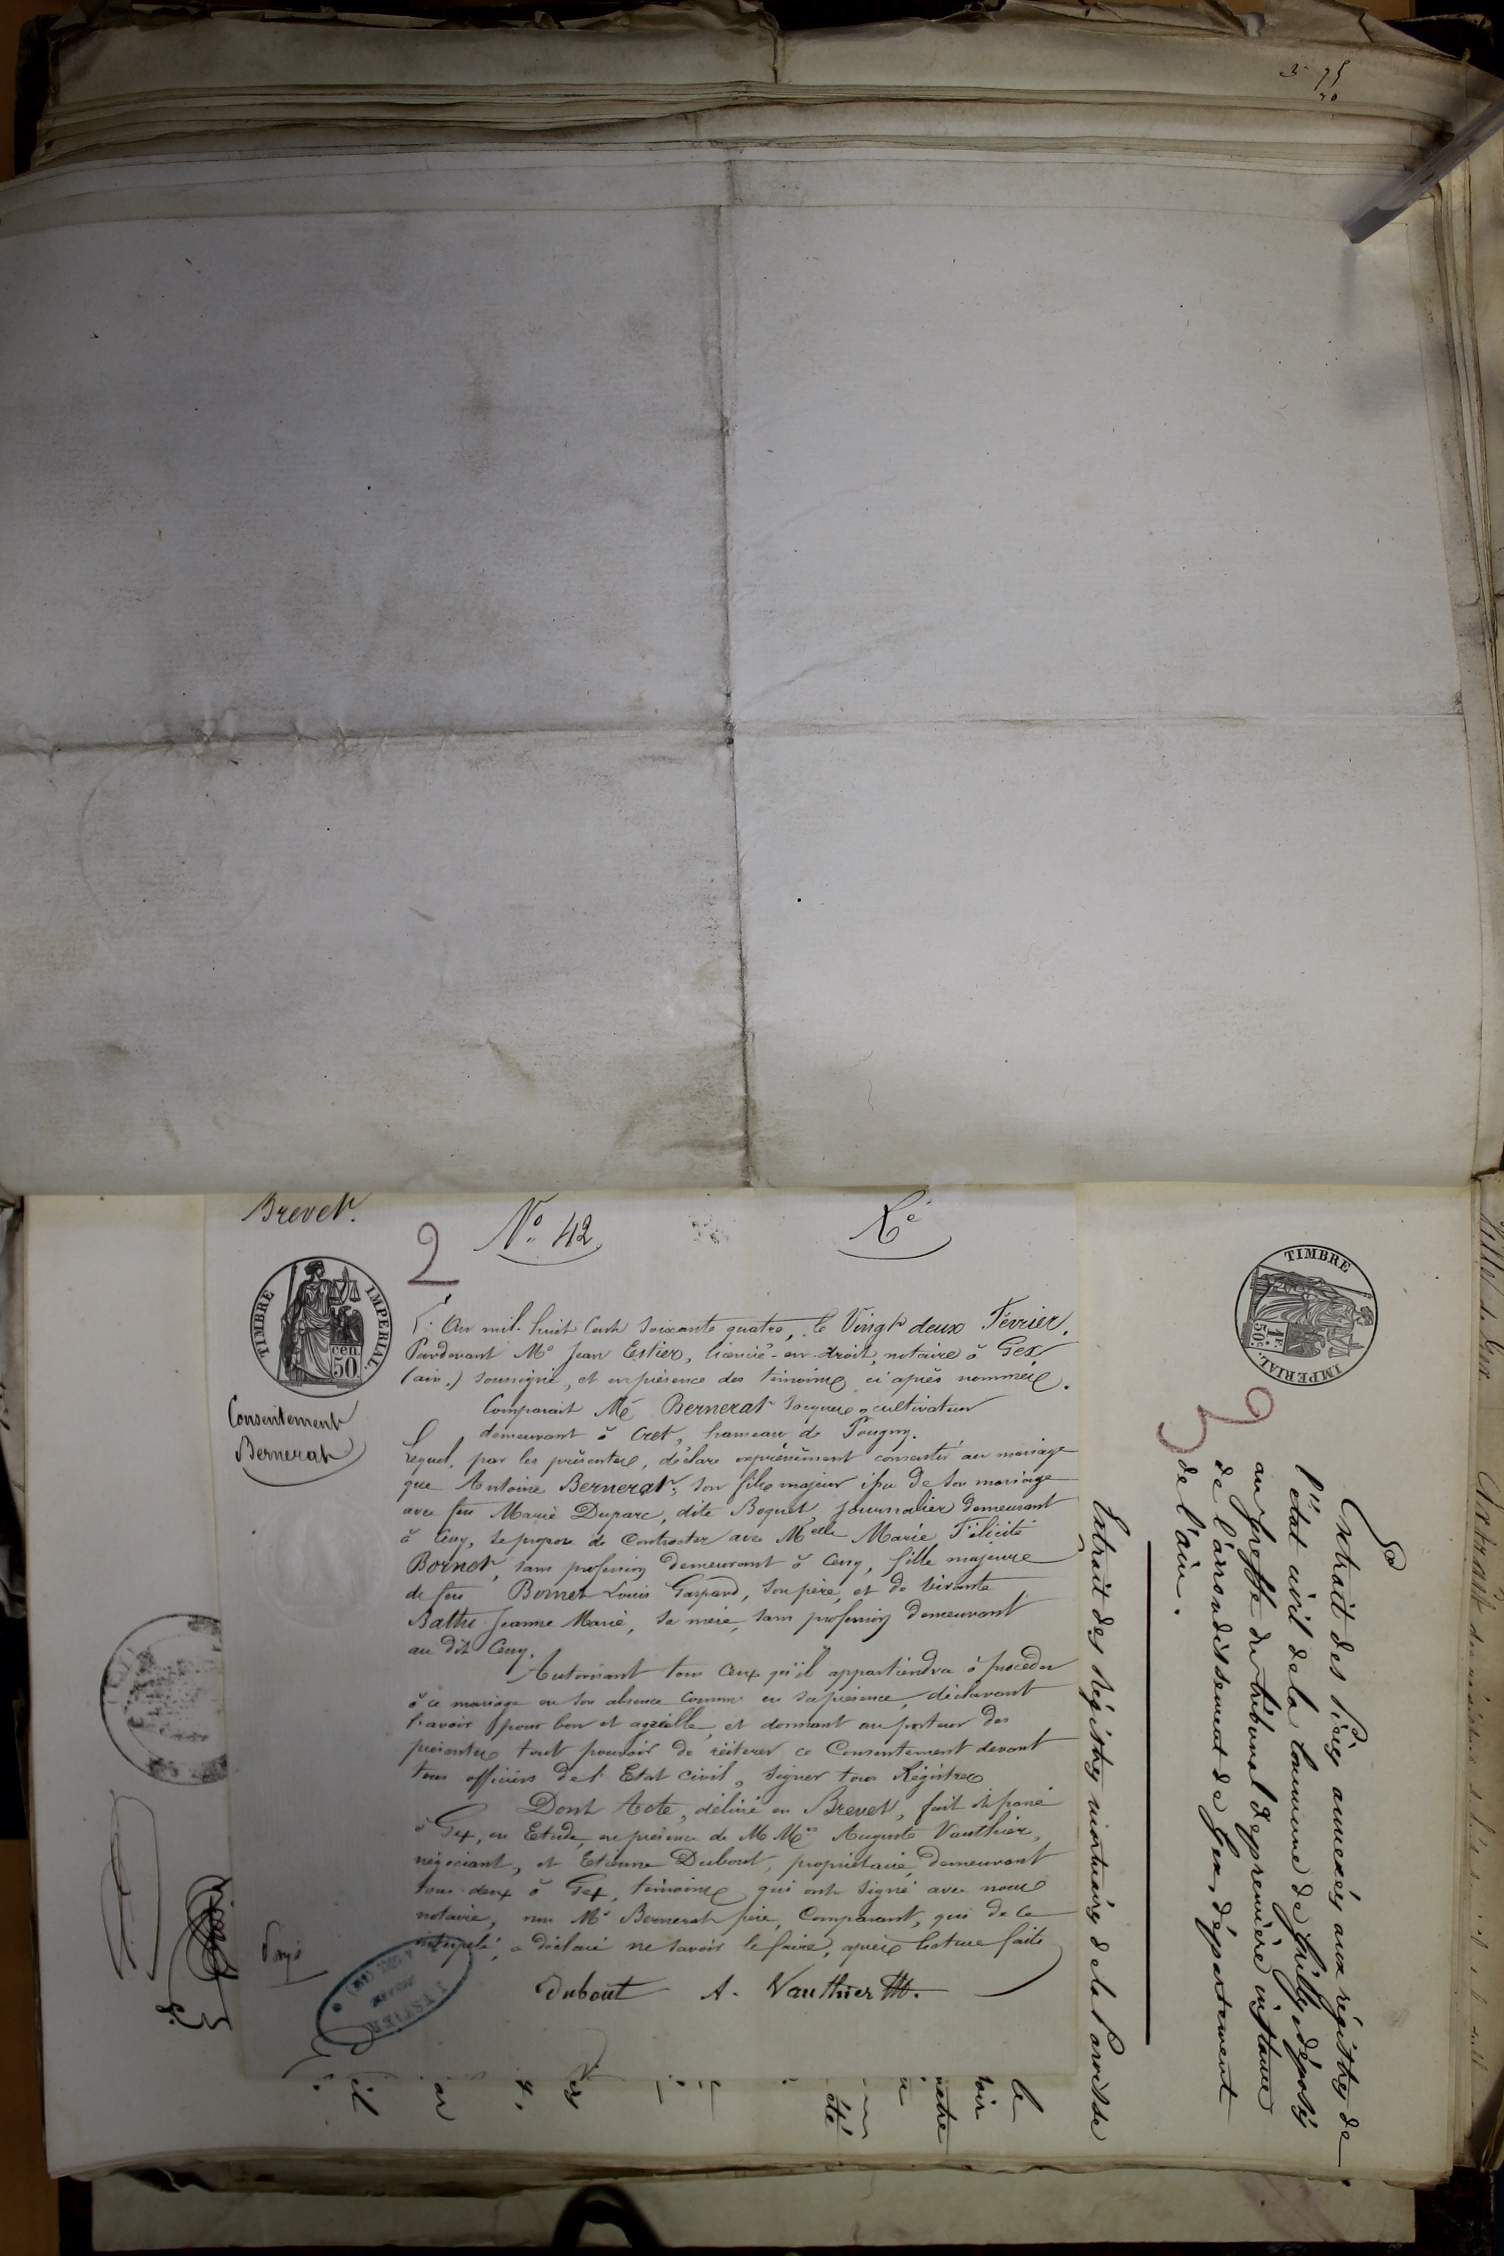 Brevet.
2
N° 42
TIMBRE IMPERIAL.
cen.
50
Consentement
Bernerat
L'An mil-huit Cent Soixante quatre, le Vingt deux Février.
Pardevant Me Jean Estier, licencié-en-droit, notaire à Gex,
(ain.) soussigné, et en présence des témoins ci après nommés.
Comparait Mr Bernerat Jacques, cultivateur
demeurant à Cret, hameau de Pougny.
Lequel, par les présentes, déclare expressément consentir au mariage
que Antoine Bernerat, son fils majeur issu de son mariage
avec feu Marie Duparc, dite Boquet, journalier demeurant
à Cessy, se propose de Contracter avec Melle Marie Félicité
Bornet, sans profession demeurant à Cessy, fille majeure
de feu Bornet Louis Gaspard, son père, et de vivante
Jeanne Marie, sa mère, sans profession demeurant
au dit Cessy.
Autorisant tous Ceux qu'il appartiendra à procéder
à ce mariage en son absence Comme en sa présence, déclarant
l'avoir pour bon et agréable, et donnant au porteur des
présentes tout pouvoir de réiterer ce Consentement devant
tous officiers de l'Etat civil, signer tous Régistres
Dont Acte, délivré en Brevet, fait et passé
à Gex, en Etude, en présence de M Mrs Auguste Vauthier,
négociant, et Etienne Dubout, propriétaire, demeurant
tous-deux à Gex, témoins qui ont signé avec nous
notaire, non Mr Bernerat père, Comparant, qui de ce
interpelé, a déclaré ne savoir le faire, après lecture faite
Dubout A. Vauthier
ESTIER
TIMBRE IMPERIAL.
1 F.
50c.
3
Extrait des Pièces annexées aux régistres de
l'état civil de la Commune de déposés
au greffe du tribunal de première instance
de l'arrondissement de Gex, département
de l'ain.
Extrait des Régistres mortuaires de la Paroisse
le
soir
été
il